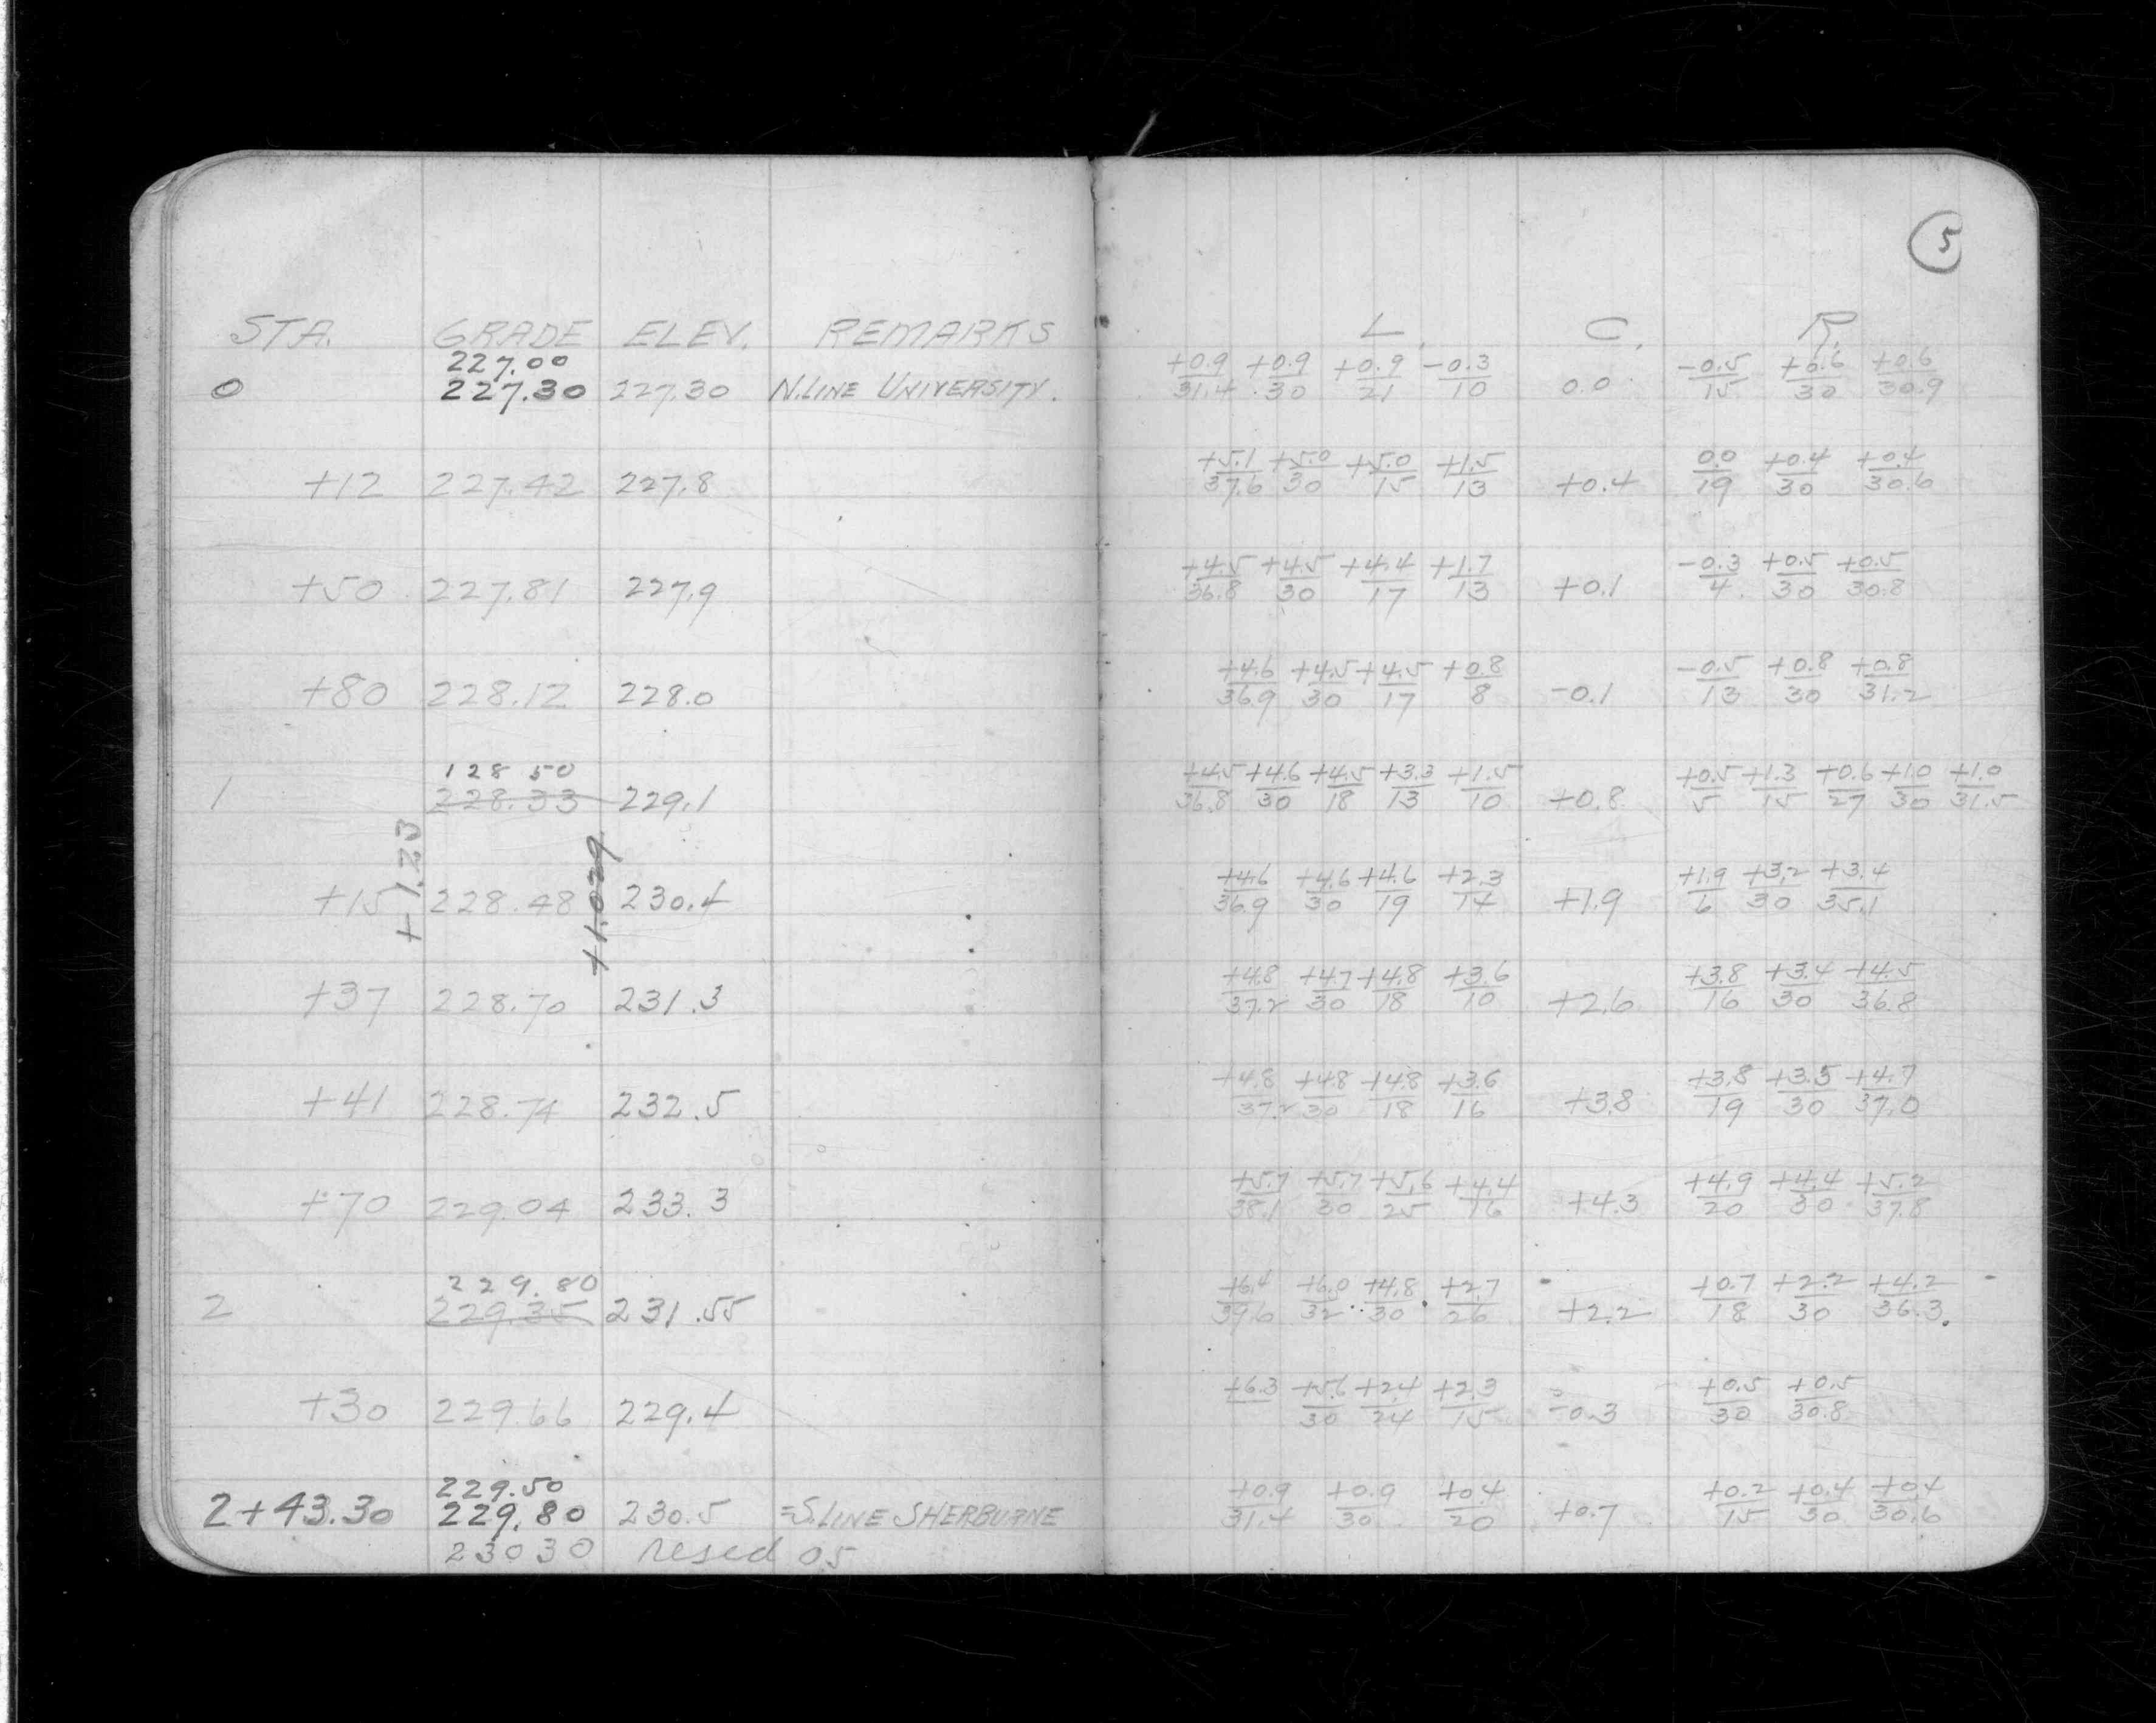 5
STA. GRADE ELEV. REMARKS L. C. R.
227.00 +0.9 +0.9 +0.9 -0.3 -0.5 +0.6 +0.6
0 227.30 227.30 N.LINE UNIVERSITY. 31.4 30 21 10 0.0 15 30 30.9
+5.1 +5.0 +5.0 +1.5 0.0 +0.4 +0.4
+12 227.42 227.8 37.6 30 15 13 +0.4 19 30 30.6
+4.5 +4.5 +4.4 +1.7 -0.3 +0.5 +0.5
+50 227.81 227.9 36.8 30 17 13 +0.1 4 30 30.8
+4.6 +4.5 +4.5 +0.8 -0.5 +0.8 +0.8
+80 228.12 228.0 36.9 30 17 8 -0.1 13 30 31.2
128 50 +4.5 +4.6 +4.5 +3.3 +1.5 +0.5 +1.3 +0.6 +1.0 +1.0
1 228.33 229.1 36.8 30 18 13 10 +0.8 5 15 27 30 31.5
+1.23 +1.029
+4.6 +4.6 +4.6 +2.3 +1.9 +3.2 +3.4
+15 228.48 230.4 36.9 30 19 14 +1.9 6 30 35.1
+4.8 +4.7 +4.8 +3.6 +3.8 +3.4 +4.5
+37 228.70 231.3 37.2 30 18 10 +2.6 16 30 36.8
+4.8 +4.8 +4.8 +3.6 +3.8 +3.5 +4.7
+41 228.74 232.5 37.2 30 18 16 +3.8 19 30 37.0
+5.7 +5.7 +5.6 +4.4 +4.9 +4.4 +5.2
+70 229.04 233.3 38.1 30 25 16 +4.3 20 30 37.8
229.80 +6.4 +6.0 +4.8 +2.7 +0.7 +2.2 +4.2
2 229.35 231.55 39.6 32 30 26 +2.2 18 30 36.3
+6.3 +5.6 +2.4 +2.3 +0.5 +0.5
+30 229.66 229.4 30 24 15 -0.3 30 30.8
229.50 +0.9 +0.9 +0.4 +0.2 +0.4 +0.4
2+43.30 229.80 230.5 =S.LINE SHERBURNE 31.4 30 20 +0.7 15 30 30.6
230 30 05